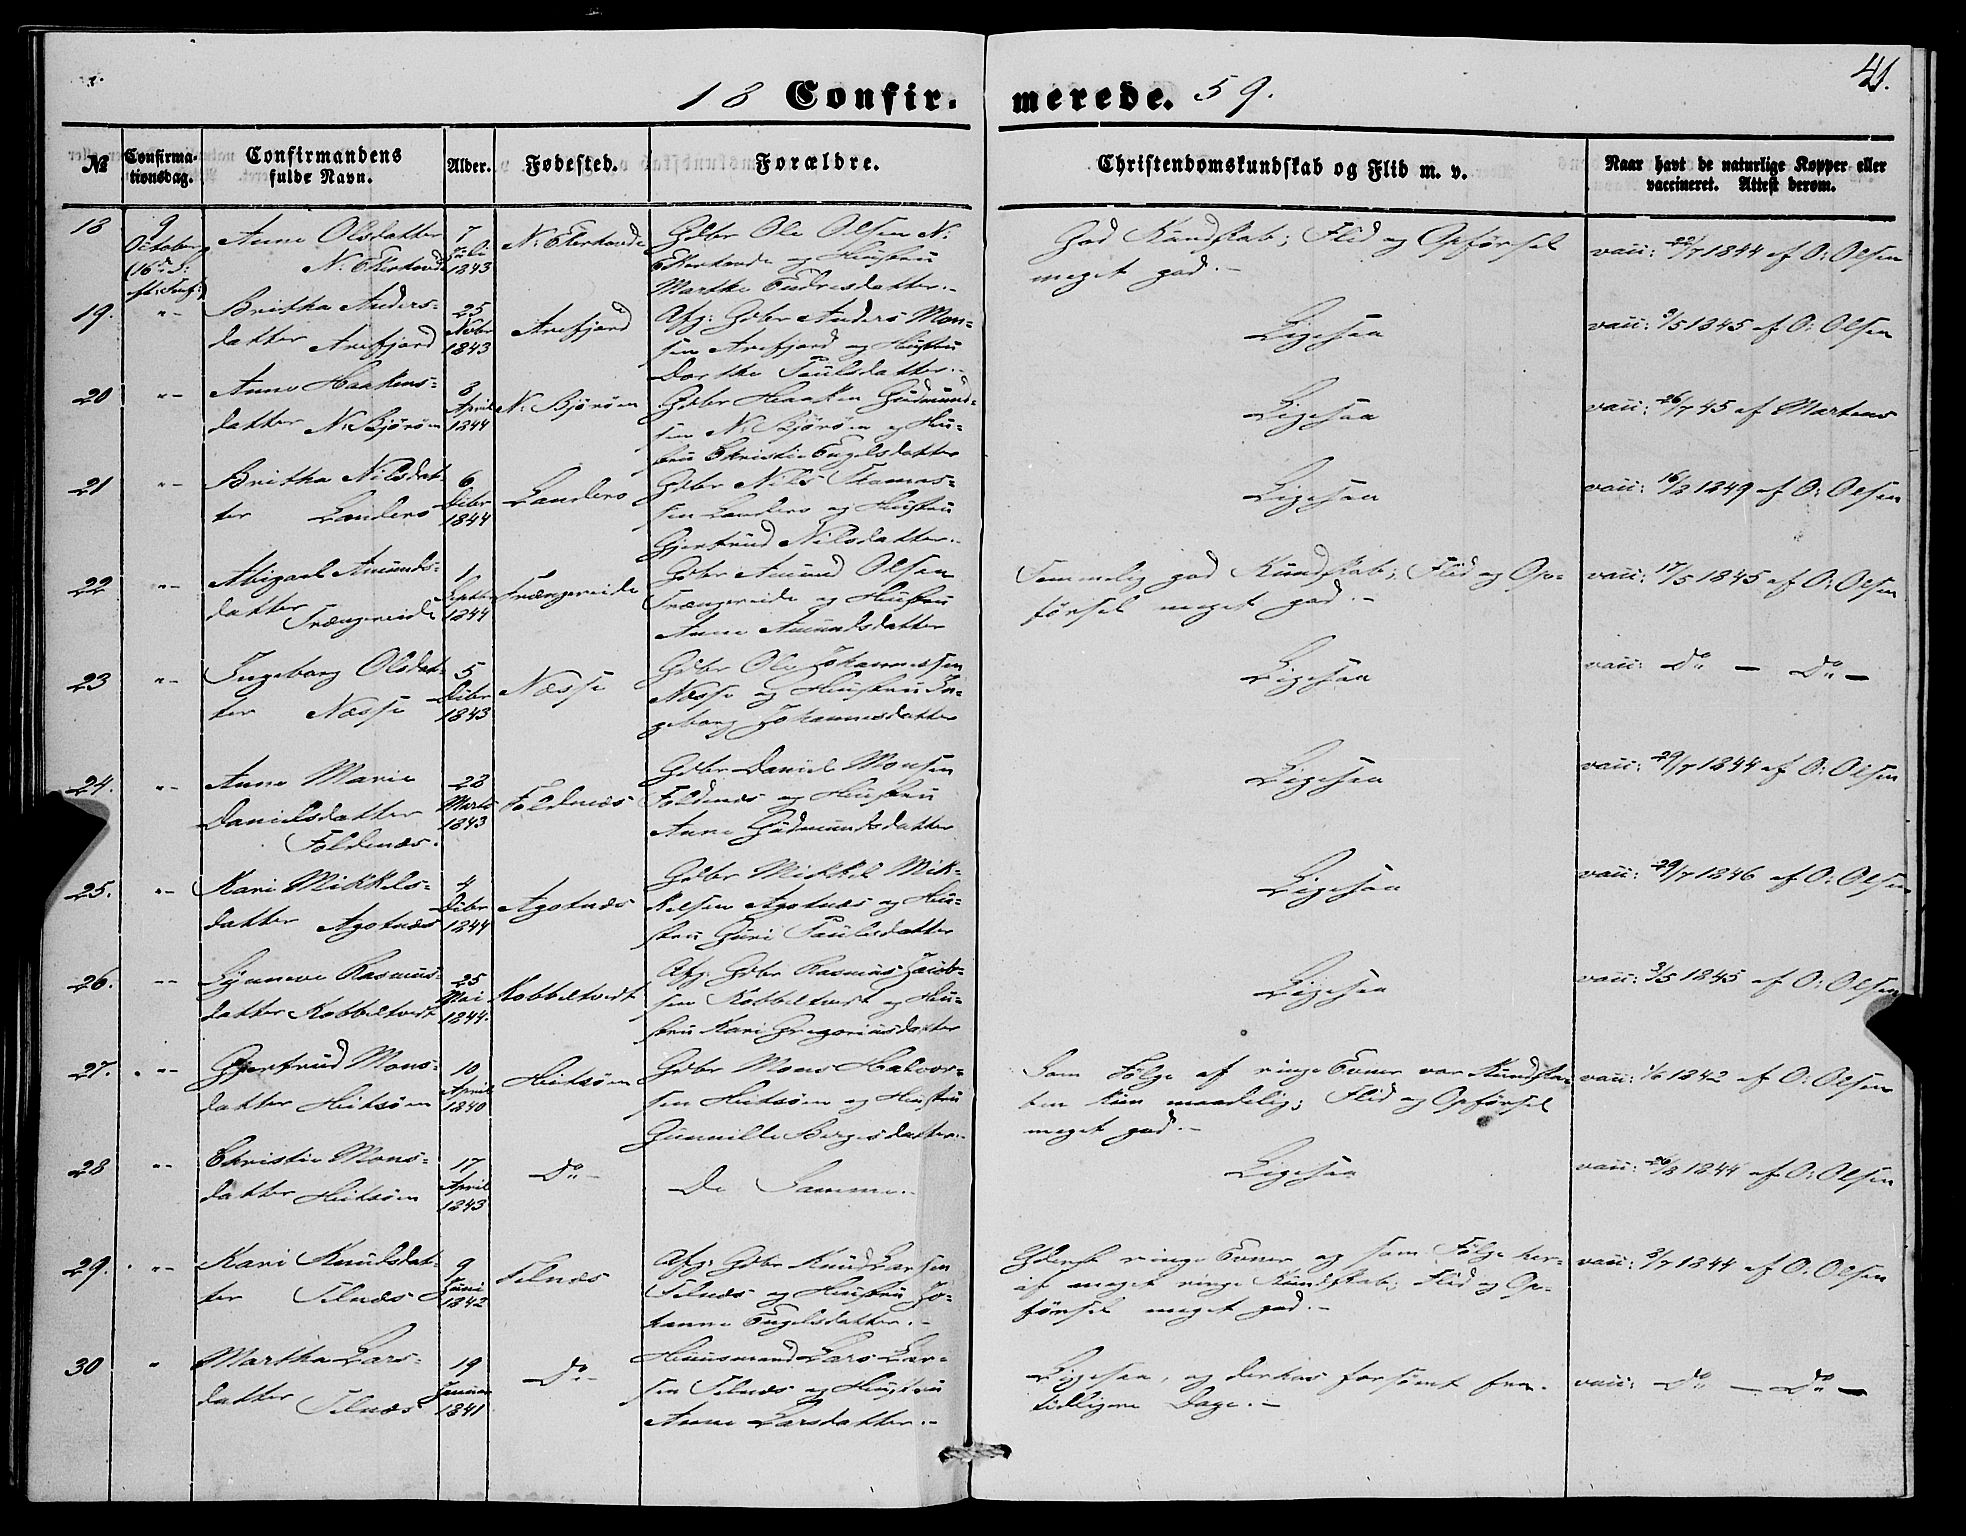 41.
18 Confir-merede. 59.
№ Confirma-tionsdag. Confirmandens fulde Navn. Alder. Fødested. Forældre. Christendomskundskab og Flid m. v. Naar havt de naturlige Kopper eller vaccineret. Attest derom.
18 9 October (16de S: Anne Olsdatter N. Ekerhovde 7 Juli 1843 N: Ekerhovde Gdbr Ole Olsen N.
Ekerhovde og Hustru
Marthe Endresdatter.- God Kundskab; Flid og Opførsel
meget god.- vacc: 22/7 1844 af O: Olsen
19. "- Britha Anders-
datter Arefjord 25 Novbr 1843 Arefjord Afg: Gdbr Anders Mon-
sen Arefjord og Hustru
Dorthe Paulsdatter.- Ligesaa vacc: 9/5 1845 af O: Olsen
20 "- Anne Haakens-
datter N. Bjørøen 8 April 1844 N. Bjørøen Gdbr Haaken Gudmund-
sen N. Bjørøen og Hu-
stru Christie Engelsdatter Ligesaa vacc: 26/7 45 af Martens
21 "- Britha Nilsdat-
ter Landero 6 Decbr 1844 Landero Gdbr Nils Thomas-
sen Landero og Hustru
Gjertrud Nilsdatter.- Ligesaa vacc: 16/8 1849 af O: Olsen
22 "- Abigael Amunds-
datter Trængereide 1 1844 Trængereide Gdbr Amund Olsen
Trængereide og Hustru
Anne Amundsdatter Temmelig god Kundskab; Flid og Op-
førsel meget god.- vacc: 17/5 1845 af O: Olsen
23 "- Ingeborg Olsdat-
ter Næsse 5 Decbr 1843 Næsse Gdbr Ole Johannessen
Næsse og Hustru In-
geborg Johannesdatter Ligesaa vacc: Do - Do -
24. "- Anne Marie
Danielsdatter
Foldnæs. 28 Marts 1843 Foldnæs Gdbr Daniel Monsen
Foldnæs og Hustru
Anne Gudmundsdatter Ligesaa vacc: 29/7 1844 af O: Olsen
25. "- Kari Mikkels-
datter Agotnæs 4 Decbr 1844 Agotnæs Gdbr Mikkel Mik-
kelsen Agotnæs og Hu-
stru Guri Paulsdatter Ligesaa vacc: 29/7 1846 af O: Olsen
26. "- Synneve Rasmus-
datter Kobbeltvedt 25 Mai 1844. Kobbeltvedt Afg: Gdbr Rasmus Jacob-
sen Kobbeltvedt og Hu-
stru Kari Gregoriusdatter Ligesaa vacc: 3/5 1845 af O: Olsen
27. "- Gjertrud Mons-
datter Hitsøen 10 April 1840 Hitsøen Gdbr Mons Halvor-
sen Hitsøen og Hustru
Gunnilde Børgesdatter.- Som Følge af ringe Evner var Kundska-
ben kun maadelig; Flid og Opførsel
meget god.- vacc: 1/6 1842 af O: Olsen
28 "- Christie Mons-
datter Hitsøen 17 April 1843 Do- De Samme.- Ligesaa vacc: 26/8 1844 af O: Olsen
29. "- Kari Knudsdat-
ter Telnæs 9 Juni 1842 Telnæs Afg: Gdbr Knud Larsen
Telnæs og Hustru Jo-
hanne Engelsdatter.- Yderst ringe Evner og som Følge her-
af meget ringe Kundskab; Flid og Op-
førsel meget god.- vacc: 8/7 1844 af O. Olsen
30 " Martha Lars-
datter Telnæs 19 Januar 1841 Do- Huusmand Lars Lar-
sen Telnæs og Hustru
Anne Larsdatter.- Ligesaa, og derhos forsømt fra
tidligere Dage.- vacc: Do - Do -